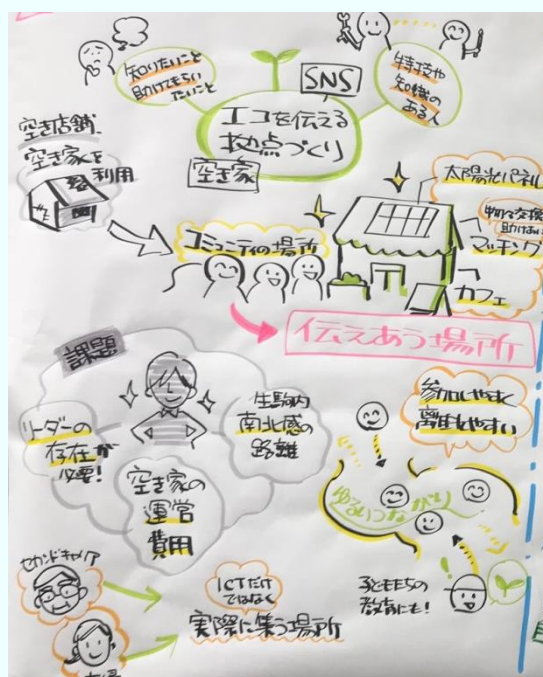 知りたいこと
助けてもらい
たいこと
SNS
特技や
知識の
ある人
エコを伝える
拠点づくり
空き家
空き店舗
空き家を
利用
太陽光パネル
物々交換
助けあい
マッチング
カフェ
コミュニティの場所
伝えあう場所
課題
リーダーの
存在が
必要!
生駒内
南北感の
路離
空き家の
運営
費用
参加しやすく
離脱しやすい
ゆるいつながり
セカンドキャリア
ICTだけ
ではなく
実際に集う場所
子どもたちの
教育にも!